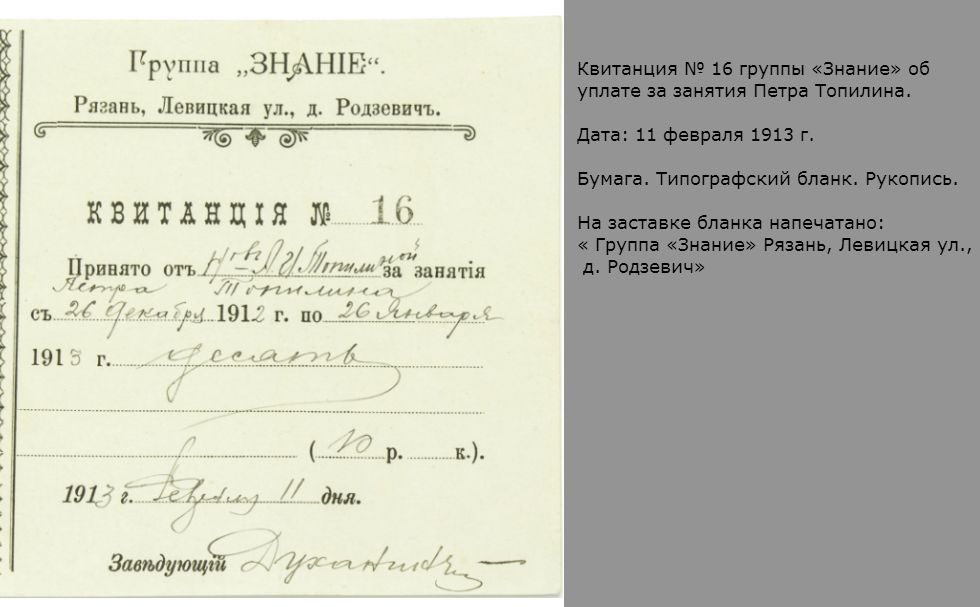 Группа „ЗНАНІЕ“.
Рязань, Левицкая ул., д. Родзевичъ.
КВИТАНЦІЯ № 16
Принято отъ Я И Топилиной за занятія
Петра Топилина
съ 26 Декабря 1912 г. по 26 Января
1913 г. десать
(10 р. к.).
1913 г. Февраля 11 дня.
Завѣдующій
Квитанция № 16 группы «Знание» об
уплате за занятия Петра Топилина.
Дата: 11 февраля 1913 г.
Бумага. Типографский бланк. Рукопись.
На заставке бланка напечатано:
« Группа «Знание» Рязань, Левицкая ул.,
д. Родзевич»